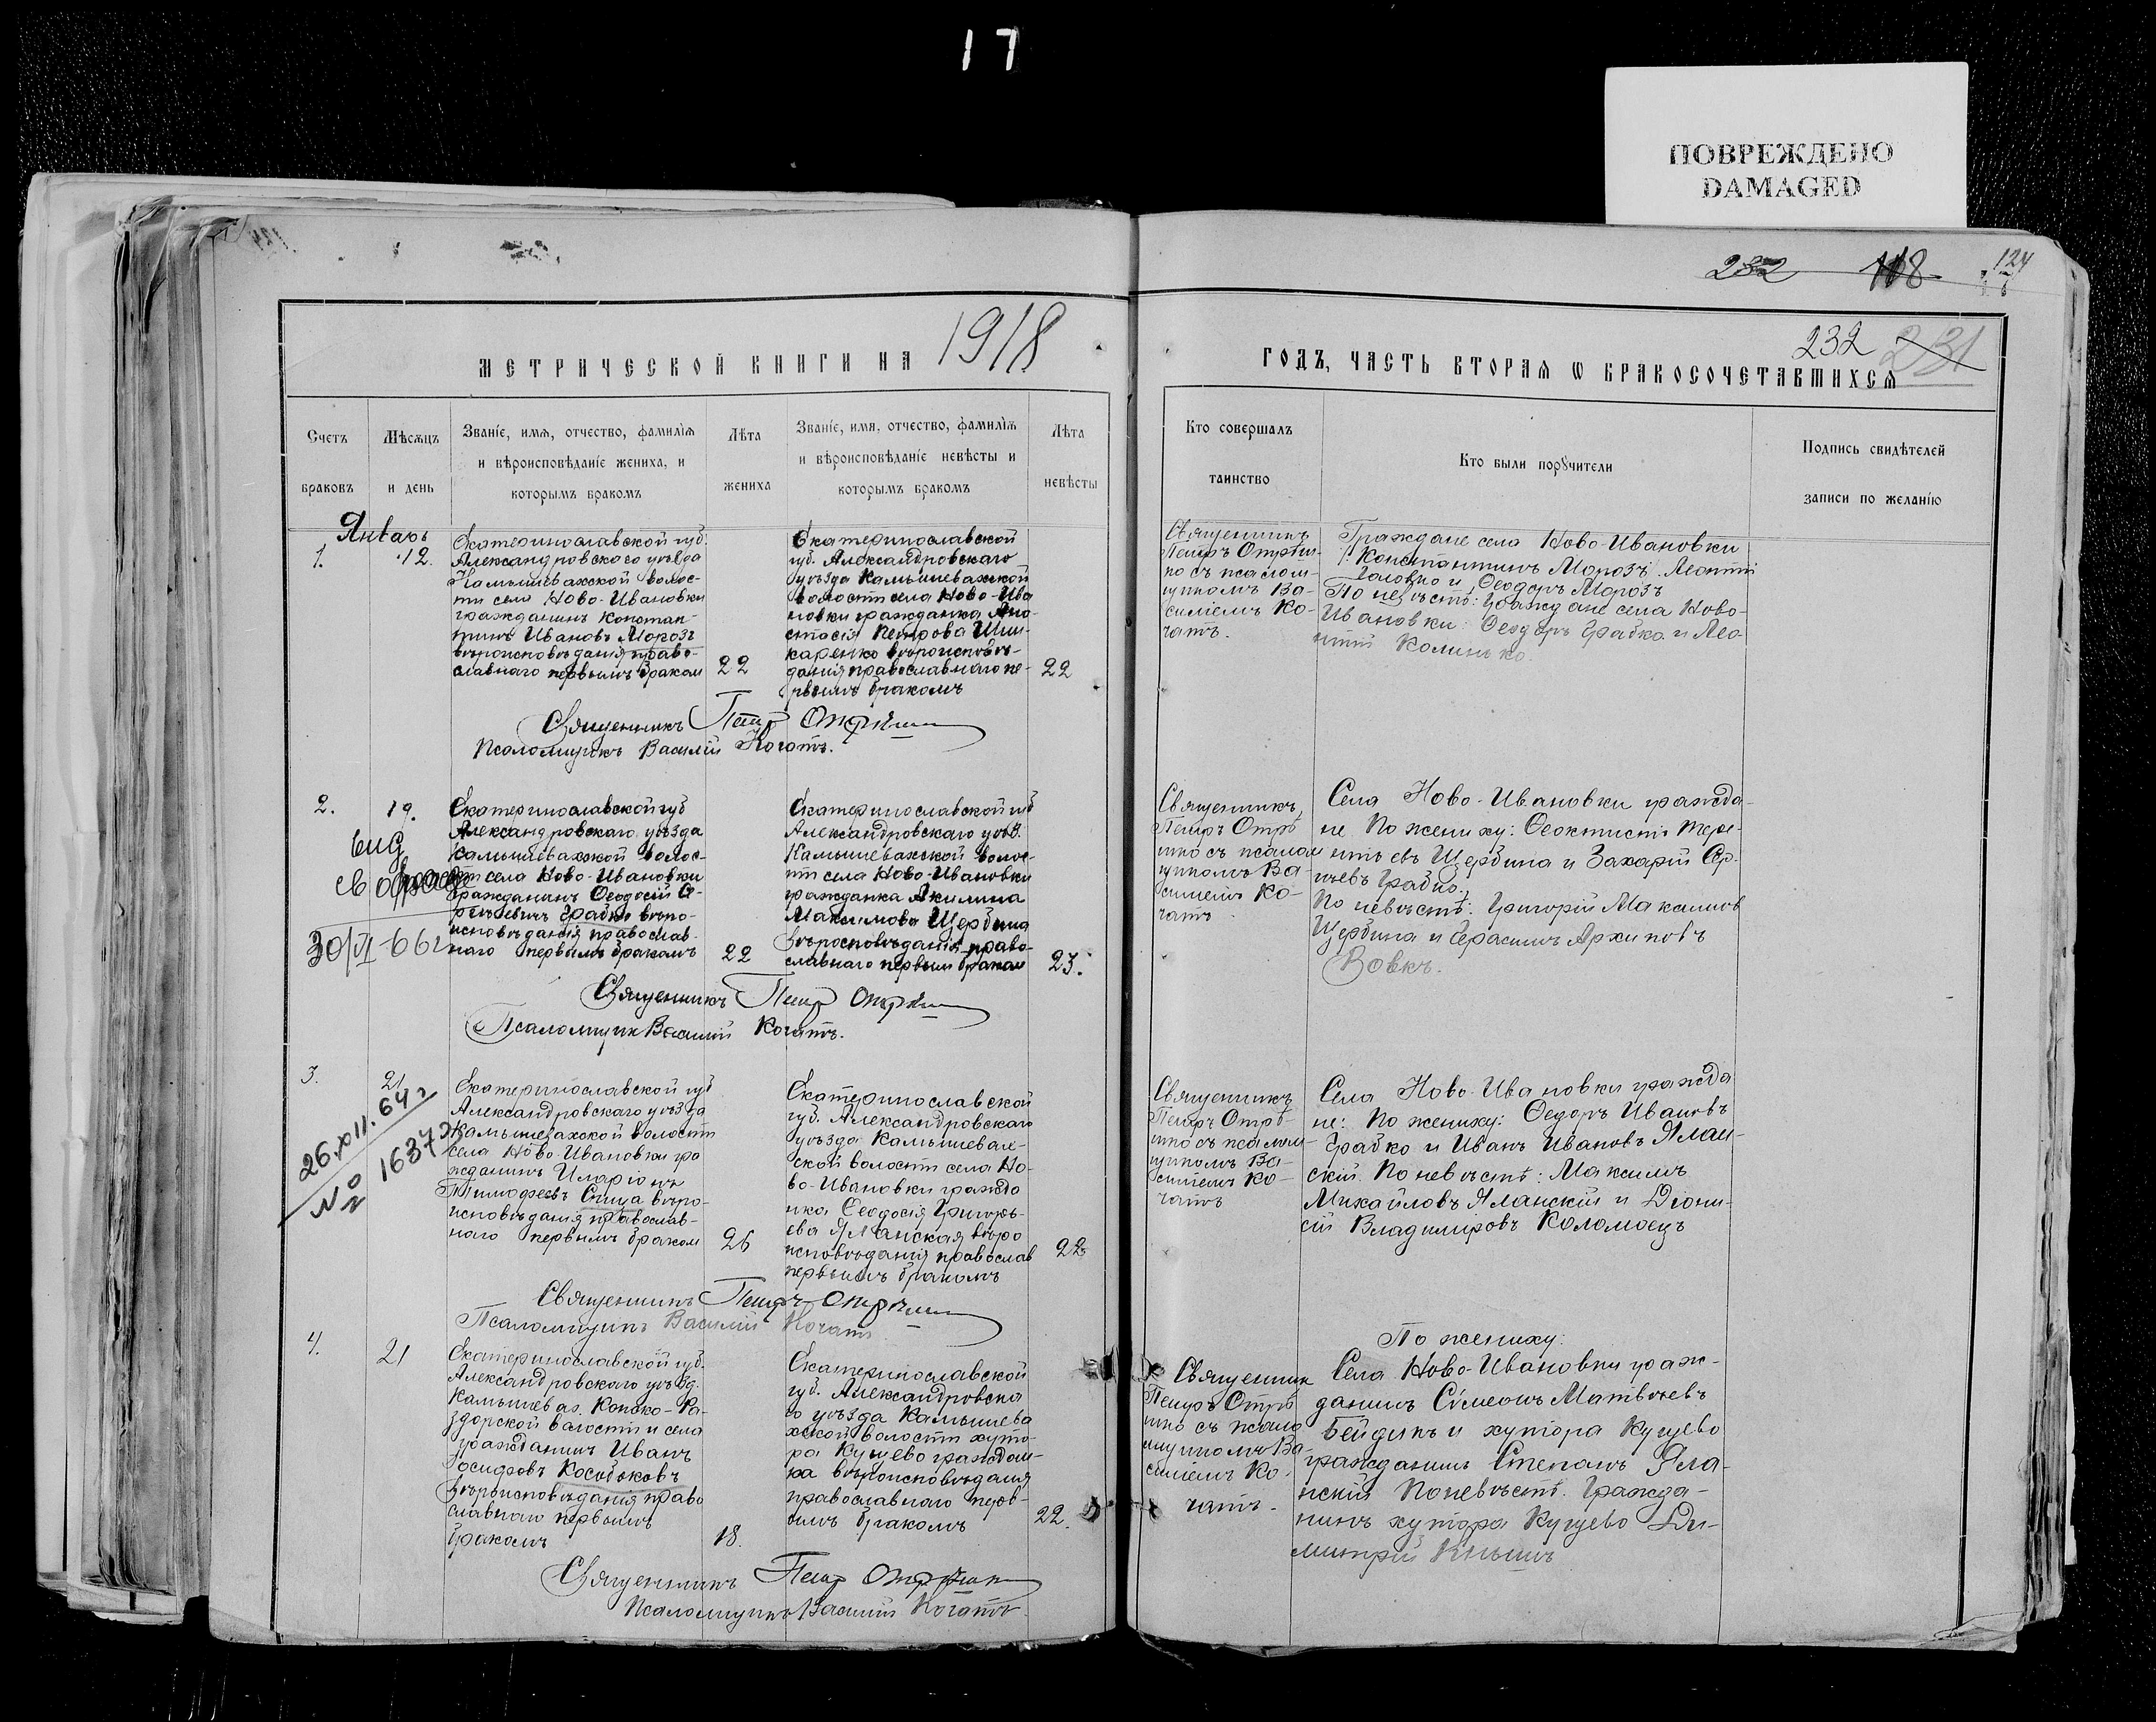 17
ПОВРЕЖДЕНО
DAMAGED
232 118 124
232 231
МЕТРИЧЕСКОЙ КНИГИ НА 1918
ГОДЪ, ЧАСТЬ ВТОРАѦ Ѡ БРАКОСОЧЕТАВШИХСѦ
Счетъ
браковъ
Мѣсѧцъ
и день
Званіе, имѧ, отчество, фамиліѧ
и вѣроисповѣданіе жениха, и
которымъ бракомъ
Лѣта
жениха
Званіе, имѧ, отчество, фамиліѧ
и вѣроисповѣданіе невѣсты и
которымъ бракомъ
Лѣта
невѣсты
Кто совершалъ
таинство
Кто были порꙋчители
Подпись свидѣтелей
записи по желанію
Январь
1.
12.
Екатеринославской губ.
Александровскаго уѣзда
Камышевахской волос-
ти села Ново-Ивановки
гражданинъ Констан-
тинъ Ивановъ Морозъ
вѣроисповѣданія право-
славнаго первымъ браком
22
Екатеринославской
губ. Александровскаго
уѣзда Камышевахской
волости села Ново-Ива
новки гражданка Ана-
стасія Петрова Шин-
каренко вѣроисповѣ-
данія православнаго пе-
рвымъ бракомъ
22
Священникъ Петр
Псаломщикъ Василій Кочатъ.
Священникъ
Петръ
но съ псалом-
щикомъ Ва-
силіемъ Ко-
чатъ.
Граждане села Ново-Ивановки
Константинъ Морозъ Леонтій
Головко и Ѳеодоръ Морозъ
По невѣстѣ: Граждане села Ново-
Ивановки: Ѳеодоръ Грабко и Лео-
нтій Калинько.
2.
19.
вид
св о браке
30/VI-66г
Екатеринославской губ
Александровскаго уѣзда
Камышевахской волос-
ти села Ново-Ивановки
гражданинъ Ѳеодосій С-
ргѣевичъ Грабко вѣро-
исповѣданія православ-
наго первымъ бракомъ
22
Екатеринославской губ
Александровскаго уѣз.
Камышевахской волос-
ти села Ново-Ивановки
гражданка Акилина
Максимова Щербина
вѣроисповѣданія право-
славнаго первым бракам
23.
Священникъ Петр
Псаломщик Василій Кочатъ.
Священникъ
Петръ
съ псалом
щикомъ Ва-
силіемъ Ко-
чатъ
Села Ново-Ивановки гражда-
не По жениху: Ѳеоктистъ Тере-
нтьевъ Щербина и Захарій Сер-
гѣевъ Грабко.
По невѣстѣ: Григорій Максимов
Щербина и Герасимъ Архиповъ
Вовкъ.
3.
21
26.XII.64г
№ 16372
Екатеринославской губ
Александровскаго уѣзда
Камышевахской волости
села Ново-Ивановки гра
жданинъ Иларіонъ
Тимофеевъ Спица вѣро-
исповѣданія православ-
наго первымъ браком
26
Екатеринославской
губ. Александровскаго
уѣзда Камышевах-
ской волости села Но-
во-Ивановки гражда
нка Ѳеодосія Григорь-
ева Яланская вѣро
исповѣданія православ
первымъ бракомъ
22
Священникъ Петръ
Псаломщикъ Василій Кочатъ
Священникъ
Петръ
съ псалом-
щикомъ Ва-
силіемъ Ко-
чатъ
Села Ново-Ивановки гражда
не: По жениху: Ѳедоръ Ивановъ
Грабко и Иванъ Ивановъ Ялан-
скій. По невѣстѣ: Максимъ
Михайловъ Яланскій и Діони-
сій Владиміровъ Коломоецъ
4.
21
Екатеринославской губ.
Александровскаго уѣзд.
Камышевах. Конско-Ра-
здорской волости и села
гражданинъ Иванъ
Іосифовъ Кособоковъ
вѣроисповѣданія право
славнаго первымъ
бракомъ
18.
Екатеринославской
губ. Александровска
го уѣзда Камышева
хской волости хуто-
ра Куцуево граждан-
ка вѣроисповѣданія
православнаго перв-
ымъ бракомъ
22.
Священникъ Петр
Псаломщикъ Василій Кочатъ.
Священник
Петръ
съ псало
мщикомъ Ва-
силіемъ Ко-
чатъ.
По жениху:
Села Ново-Ивановки граж-
данинъ Сѵмеонъ Матвѣевъ
Бейдикъ и хутора Куцуево
гражданинъ Степанъ Яла-
нскій По невѣстѣ. Гражда-
нинъ хутора Куцуево Ди-
митрій